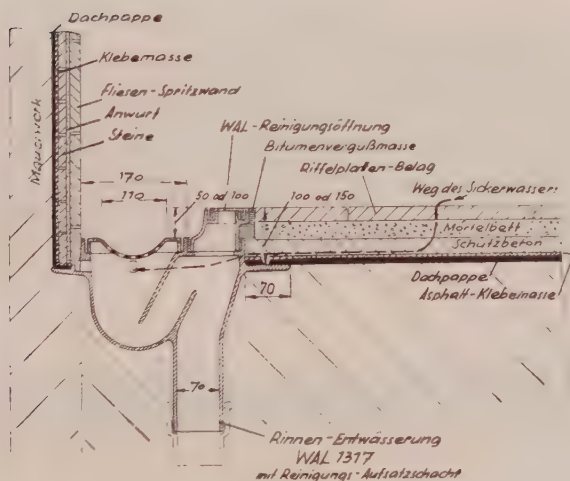 Dachpappe
Klebemasse
Fliesen-Spritzwand
Anwurf
Steine
Mauerwerk
WAL-Reinigungsöffnung
Bitumenvergußmasse
Riffelplatten-Belag
Weg des Sickerwassers
170
110
50 od 100
100 od 150
Mörtelbett
Schutzbeton
Dachpappe
Asphalt-Klebemasse
70
70
Rinnen-Entwässerung
WAL 1317
mit Reinigungs-Aufsatzschacht